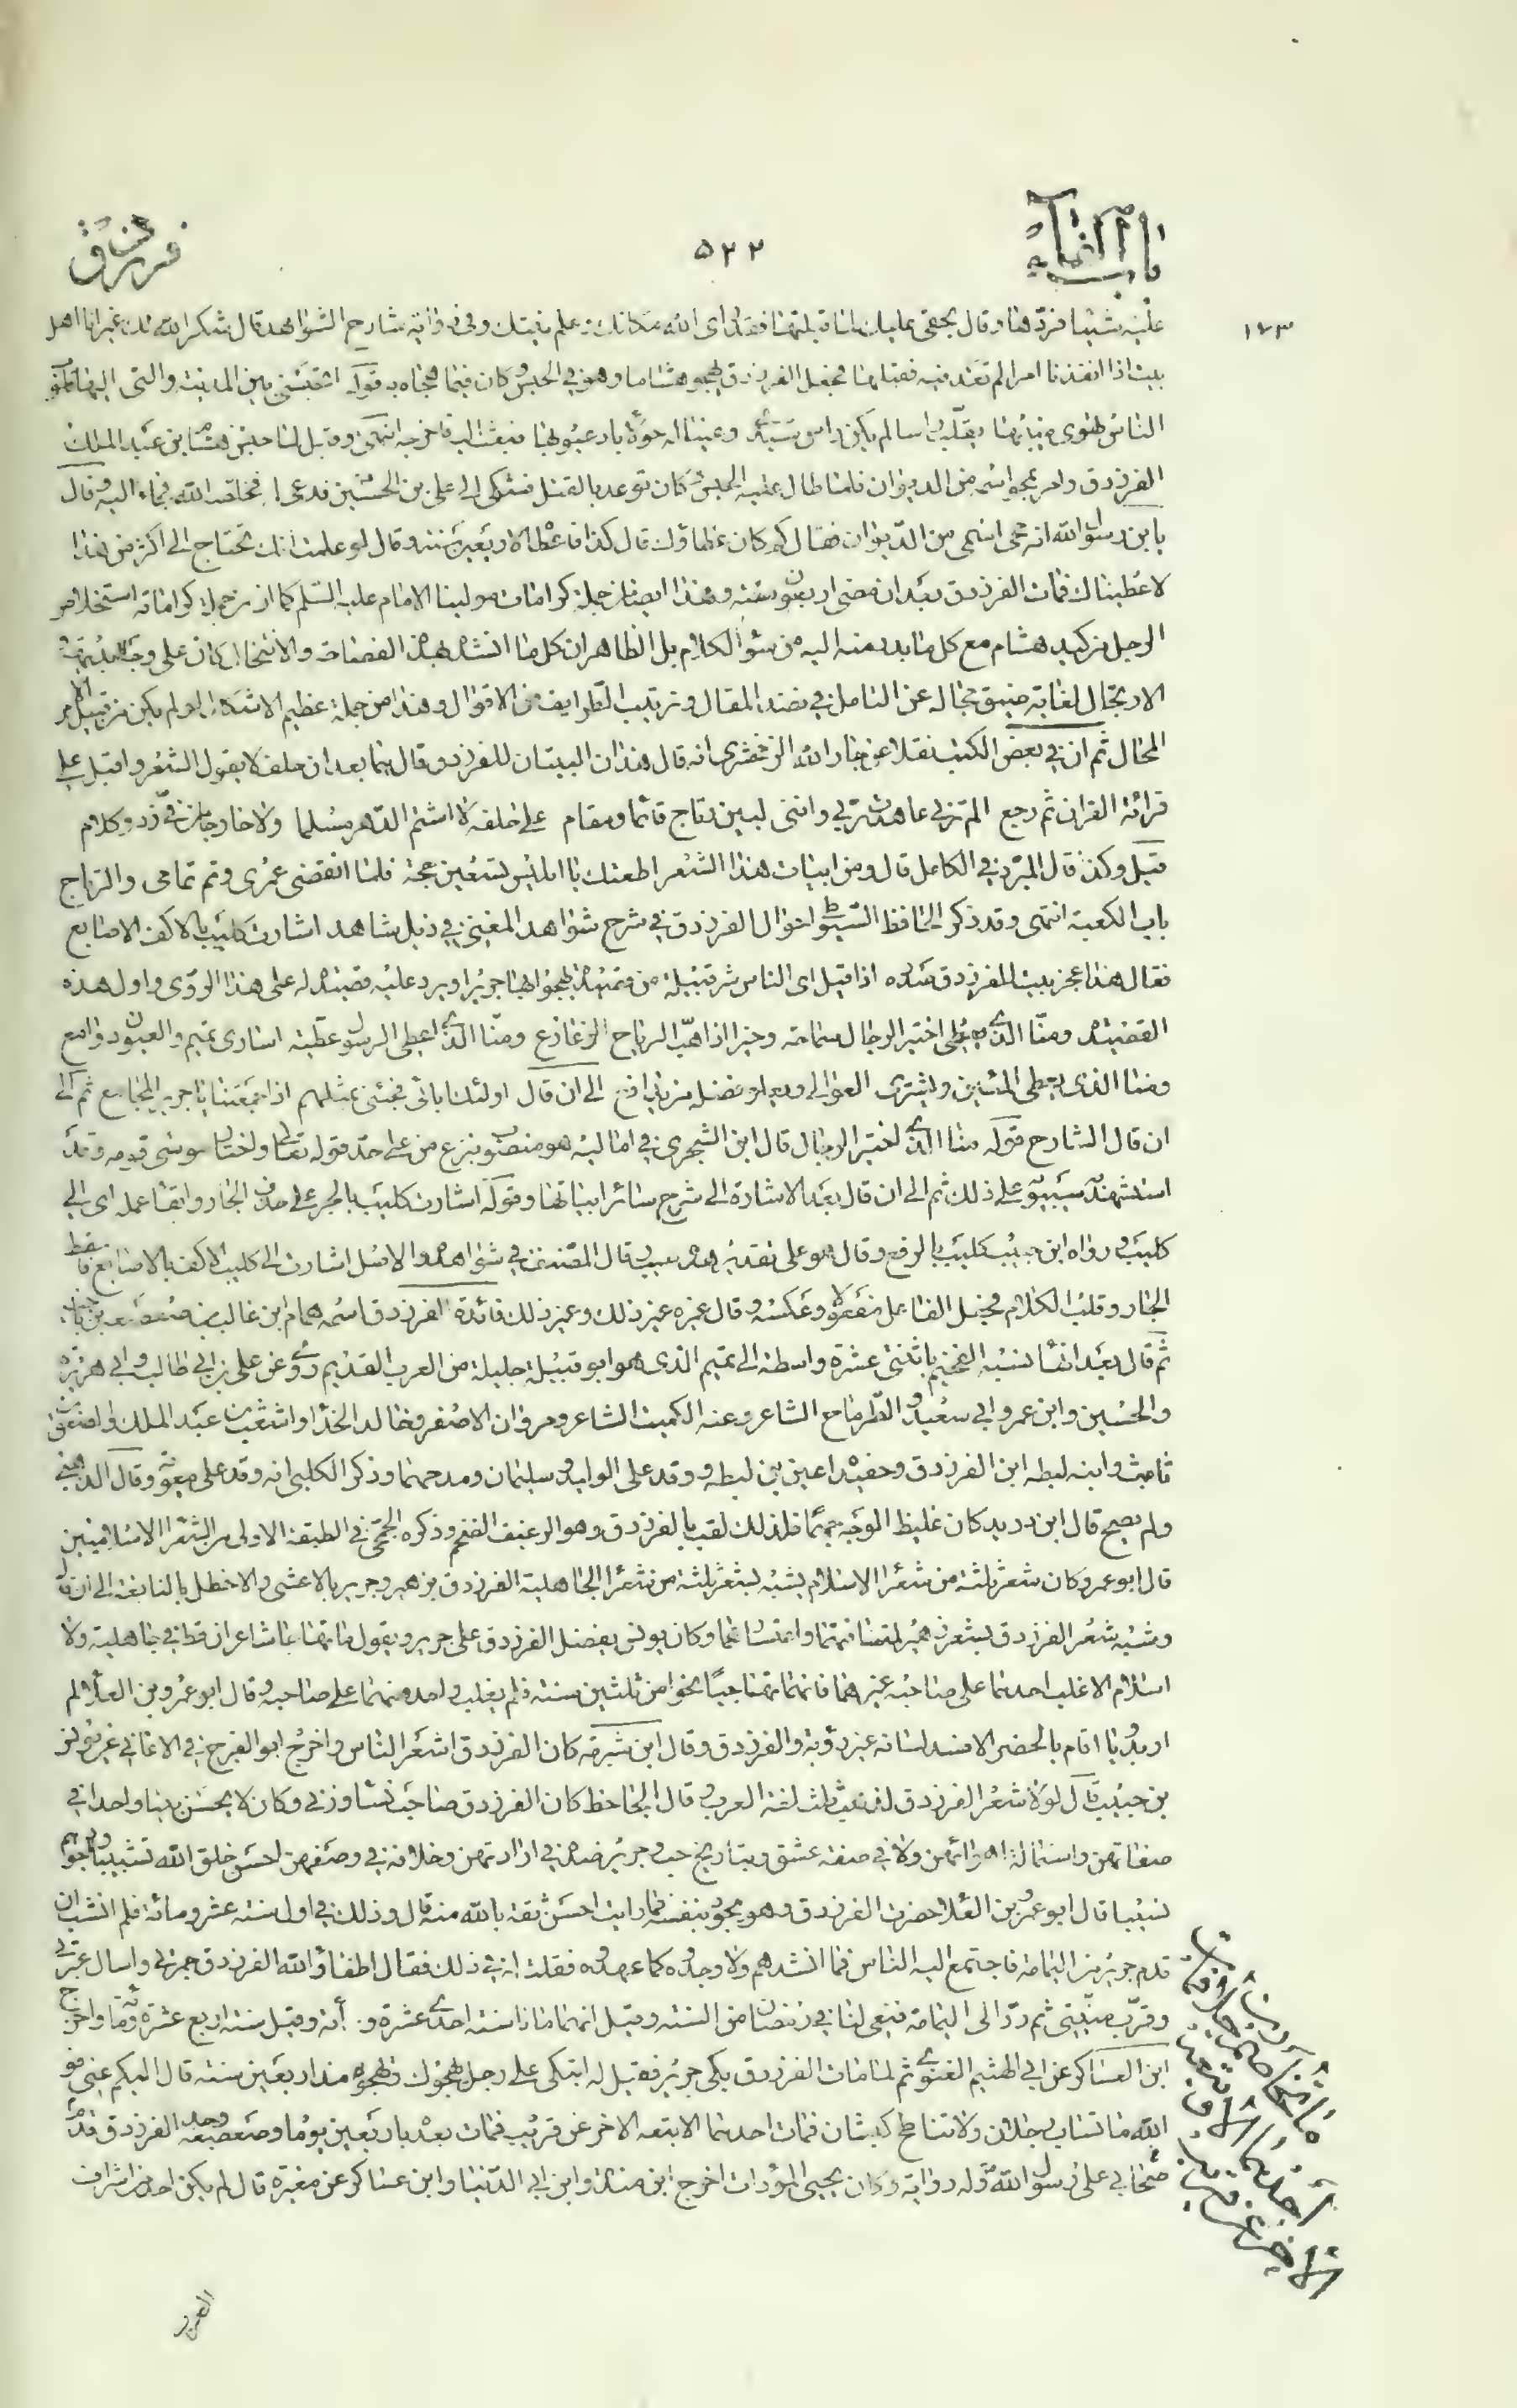 باب الفاء
۵۲۲
فرزدق
۱۷۳
عليه شيئا فردّها وقال بحقى عليك لما قبلتها فقد راى الله مكانك وعلم نيتك وفى رواية شارح الشواهد قال شكر الله لك غير انا اهل
بيت اذا انفذنا امرا لم نعد فيه فقبلها فجعل الفرزدق يهجو هشاما وهو فى الحبس وكان فيما هجاه به قوله اتحبسنى بين المدينة والتى اليها قلوب
الناس يهوى منيبها يقلب راسا لم يكن راس سيد وعينا له حولاء باد عيوبها فبعث اليه فاخرجه انتهى وقيل لما حبس هشام بن عبد الملك
الفرزدق وامر بمحو اسمه من الديوان فلما طال عليه الحبس وكان توعده بالقتل فشكى الى على بن الحسين فدعى له فخلصه الله فجاء اليه وقال
يابن رسول الله انه محى اسمى من الديوان فقال كم كان عطاؤك قال كذا فاعطاه لاربعين سنة وقال لو علمت انك تحتاج الى اكثر من هذا
لاعطيناك فمات الفرزدق بعد ان مضى اربعون سنة وهذا ايضا من جملة كرامات مولينا الامام عليه السلم كما ان من جملة كراماته استخلاص
الرجل من كيد هشام مع كل ما بدء منه اليه من سوء الكلام بل الظاهر ان كل ما انشد بهذه الفصاحة والانتحال كان على وجه البديهة
الارتجال لغاية ضيق مجاله عن التامل فى نضد المقال وترتيب الطرايف من الاقوال وهذا من جملة عظيم الاشكال لو لم يكن من قبيل الامر
المحال ثم ان فى بعض الكتب نقلا عن جار الله الزمخشرى انه قال هذان البيتان للفرزدق قالهما بعد ان حلف لا يقول الشعر واقبل على
قرائة القران ثم رجع الم ترنى عاهدت ربى واننى لبين رتاج قائما ومقام على حلفة لا اشتم الدهر مسلما ولا خارجا من فىّ زور كلام
قيل وكذا قال المبرد فى الكامل قال ومن ابيات هذا الشعر اطعتك يا ابليس تسعين حجة فلما انقضى عمرى وتم تمامى والرتاج
باب الكعبة انتهى وقد ذكر الحافظ السيوطى احوال الفرزدق فى شرح شواهد المغنى فى ذيل شاهد اشارت كليب بالاكف الاصابع
فقال هذا عجز بيت للفرزدق صدره اذا قيل اى الناس شر قبيلة من قصيدة يهجو بها جريرا ويرد عليه قصيدة له على هذا الروى واول هذه
القصيدة ومنا الذى اختير الرجال سماحة وخيرا اذا هب الرياح الزعازع ومنا الذى اعطى الرسول عطية اسارى تميم والعيون دوامع
ومنا الذى يعطى المئين ويشترى العوالى ويعلو فضله من يدافع الى ان قال اولئك ابائى فجئنى بمثلهم اذا جمعتنا يا جرير المجامع ثم الى
ان قال الشارح قوله منا الذى اختير الرجال قال ابن الشجرى فى اماليه هو منصوب بنزع من على حد قوله تعالى واختار موسى قومه وقد
استشهد به سيبويه على ذلك ثم الى ان قال بعد الاشارة الى شرح سائر ابياتها وقوله اشارت كليب بالجر على حذف الجار وابقاء عمله اى الى
كليب ورواه ابن حبيب كليب بالرفع وقال هو على تقدير هذه كليب وقال المصنف فى شواهده والاصل اشارت الى كليب الاكف بالاصابع فاسقط
الجار وقلب الكلام فجعل الفاعل مفعولا وعكسه وقال غيره غير ذلك وغير ذلك فائدة الفرزدق اسمه همام ابن غالب بن صعصعة بن ناجية
ثم قال بعد انهاء نسبه الفخيم باثنتى عشرة واسطة الى تميم الذى هو ابو قبيلة جليلة من العرب القديم روى عن على بن ابى طالب وابى هريرة
والحسين وابن عمر وابى سعيد والطرماح الشاعر وعنه الكميت الشاعر ومروان الاصفر وخالد الحذاء واشعث بن عبد الملك والصعق بن
ثابت وابنه لبطه ابن الفرزدق وحفيده اعين بن لبطه ووفد على الوليد وسليمان ومدحهما وذكر الكلبى انه وفد على معوية وقال الذهبى
ولم يصح قال ابن دريد كان غليظ الوجه جهما فلذلك لقب بالفرزدق وهو الرغيف الضخم وذكره الجمحى فى الطبقة الاولى من الشعراء الاسلاميين
قال ابو عمرو كان شعر ثلثة من شعراء الاسلام يشبه بشعر ثلثة من شعراء الجاهلية الفرزدق بزهير وجرير بالاعشى والاخطل بالنابغة الى ان قال
وشبه شعر الفرزدق بشعر زهير لمتانتهما واعتسافهما وكان يونس يفضل الفرزدق على جرير ويقول ما تهاجا شاعران قط فى جاهلية ولا
اسلام الا غلب احدهما على صاحبه غيرهما فانهما تهاجيا نحوا من ثلثين سنة فلم يغلب واحد منهما على صاحبه وقال ابو عمرو بن العلاء لم
ار بدويا اقام بالحضر الا فسد لسانه غير رؤبة والفرزدق وقال ابن شبرمة كان الفرزدق اشعر الناس واخرج ابو الفرج فى الاغانى عن يونس
بن حبيب قال لولا شعر الفرزدق لذهب ثلث لغة العرب وقال الجاحظ كان الفرزدق صاحب نساء وزنى وكان لا يحسن بيتا واحدا فى
صفاتهن واستمالة اهوائهن ولا فى صفة عشق وتباريح حب وجرير ضده فى ارادتهن وخلافه فى وصفهن احسن خلق الله تشبيبا واجودهم
نسيبا قال ابو عمرو بن العلاء حضرت الفرزدق وهو يجود بنفسه فما رايت احسن ثقة بالله منه قال وذلك فى اول سنة عشر ومائة فلم انشب ان
قدم جرير من اليمامة فاجتمع اليه الناس فما انشدهم ولا وجدوه كما عهدوه فقلت له فى ذلك فقال اطفأ والله الفرزدق جمرتى واسال عبرتى
وقرب منيتى ثم رد الى اليمامة فنعى لنا فى رمضان من السنة وقيل انهما ماتا سنة احدى عشرة و مائة وقيل سنة اربع عشرة ومائة واخرج
ابن العساكر عن ابى الهيثم الغنوى ثم لما مات الفرزدق بكى جرير فقيل له اتبكى على رجل يهجوك وتهجوه مذ اربعين سنة قال اليكم عنى فو
الله ما تساب رجلان ولا تناطح كبشان فمات احدهما الا تبعه الاخر عن قريب فمات بعده باربعين يوما وصعصعة جد الفرزدق قدم
صحابى على رسول الله وله رواية وكان يحيى الموؤدات اخرج ابن مندة وابن ابى الدنيا وابن عساكر عن مغيرة قال لم يكن احد من اشراف
ما تساب رجلان ولا تناطح كبشان فمات
احدهما الا تبعه
الاخر عن قريب
العرب